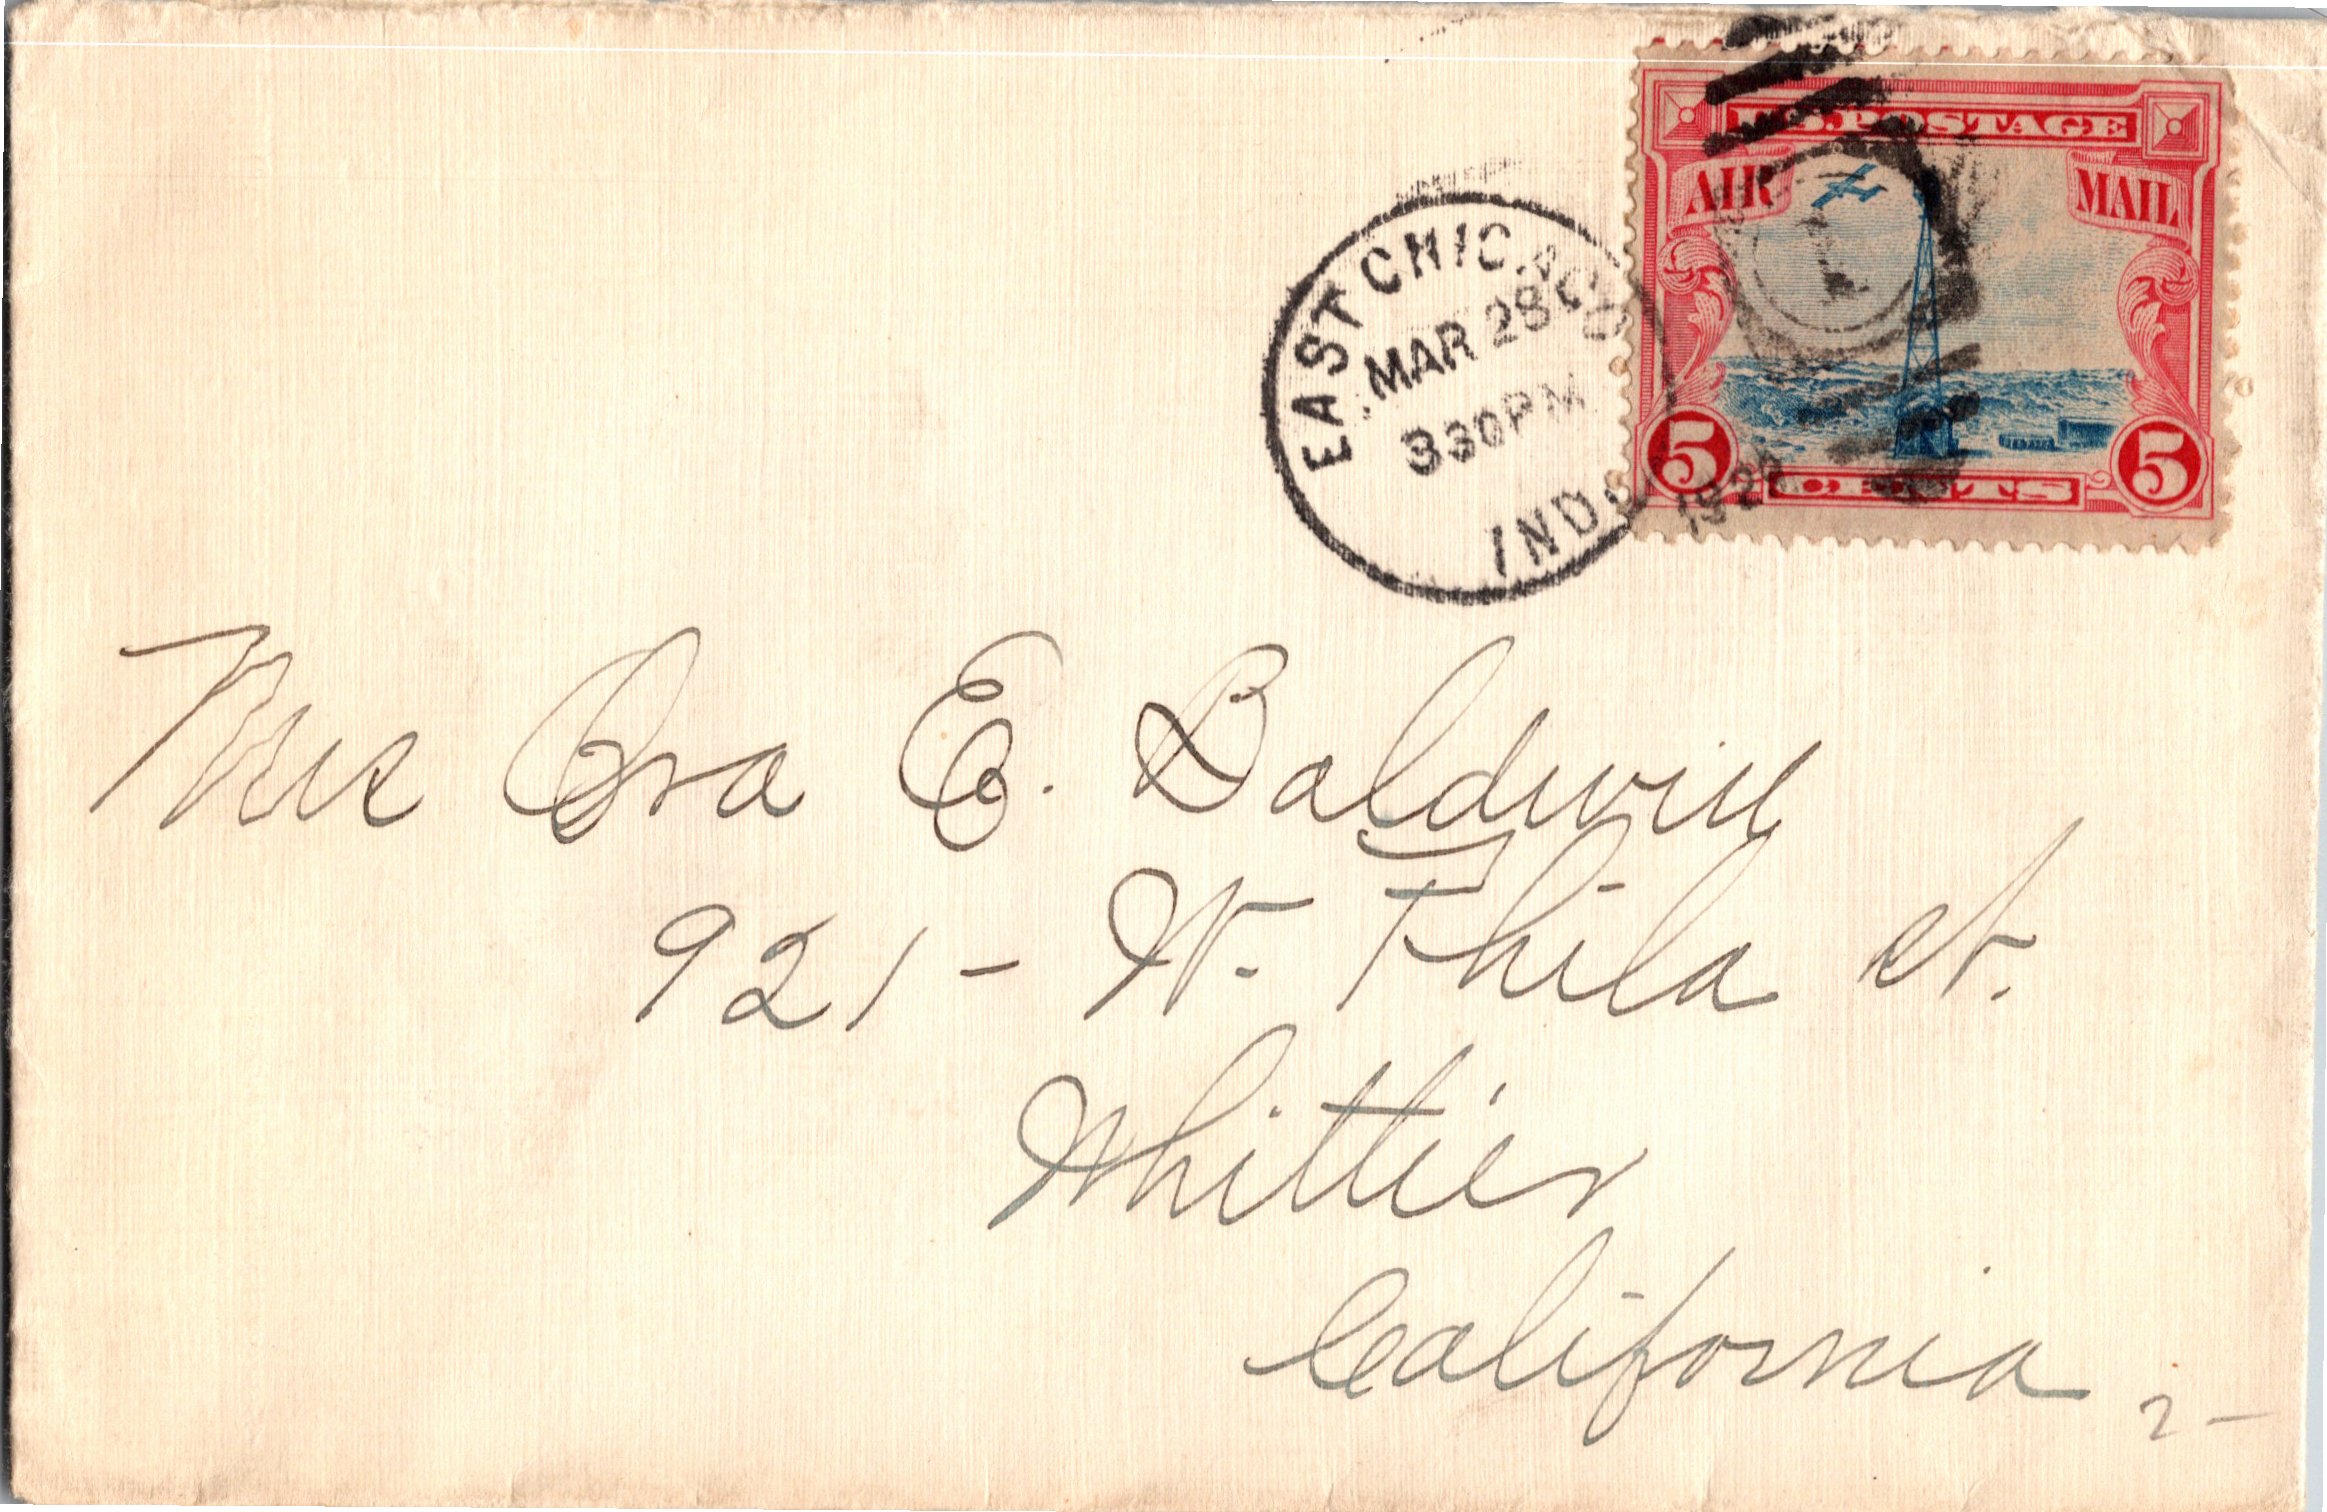 U.S. POSTAGE
AIR MAIL
5 CENTS 5
EAST CHICAGO
MAR 28
330 PM
IND.
Mrs Ora E. Baldwin
921 - W. Phila st.
Whittier
California
2-